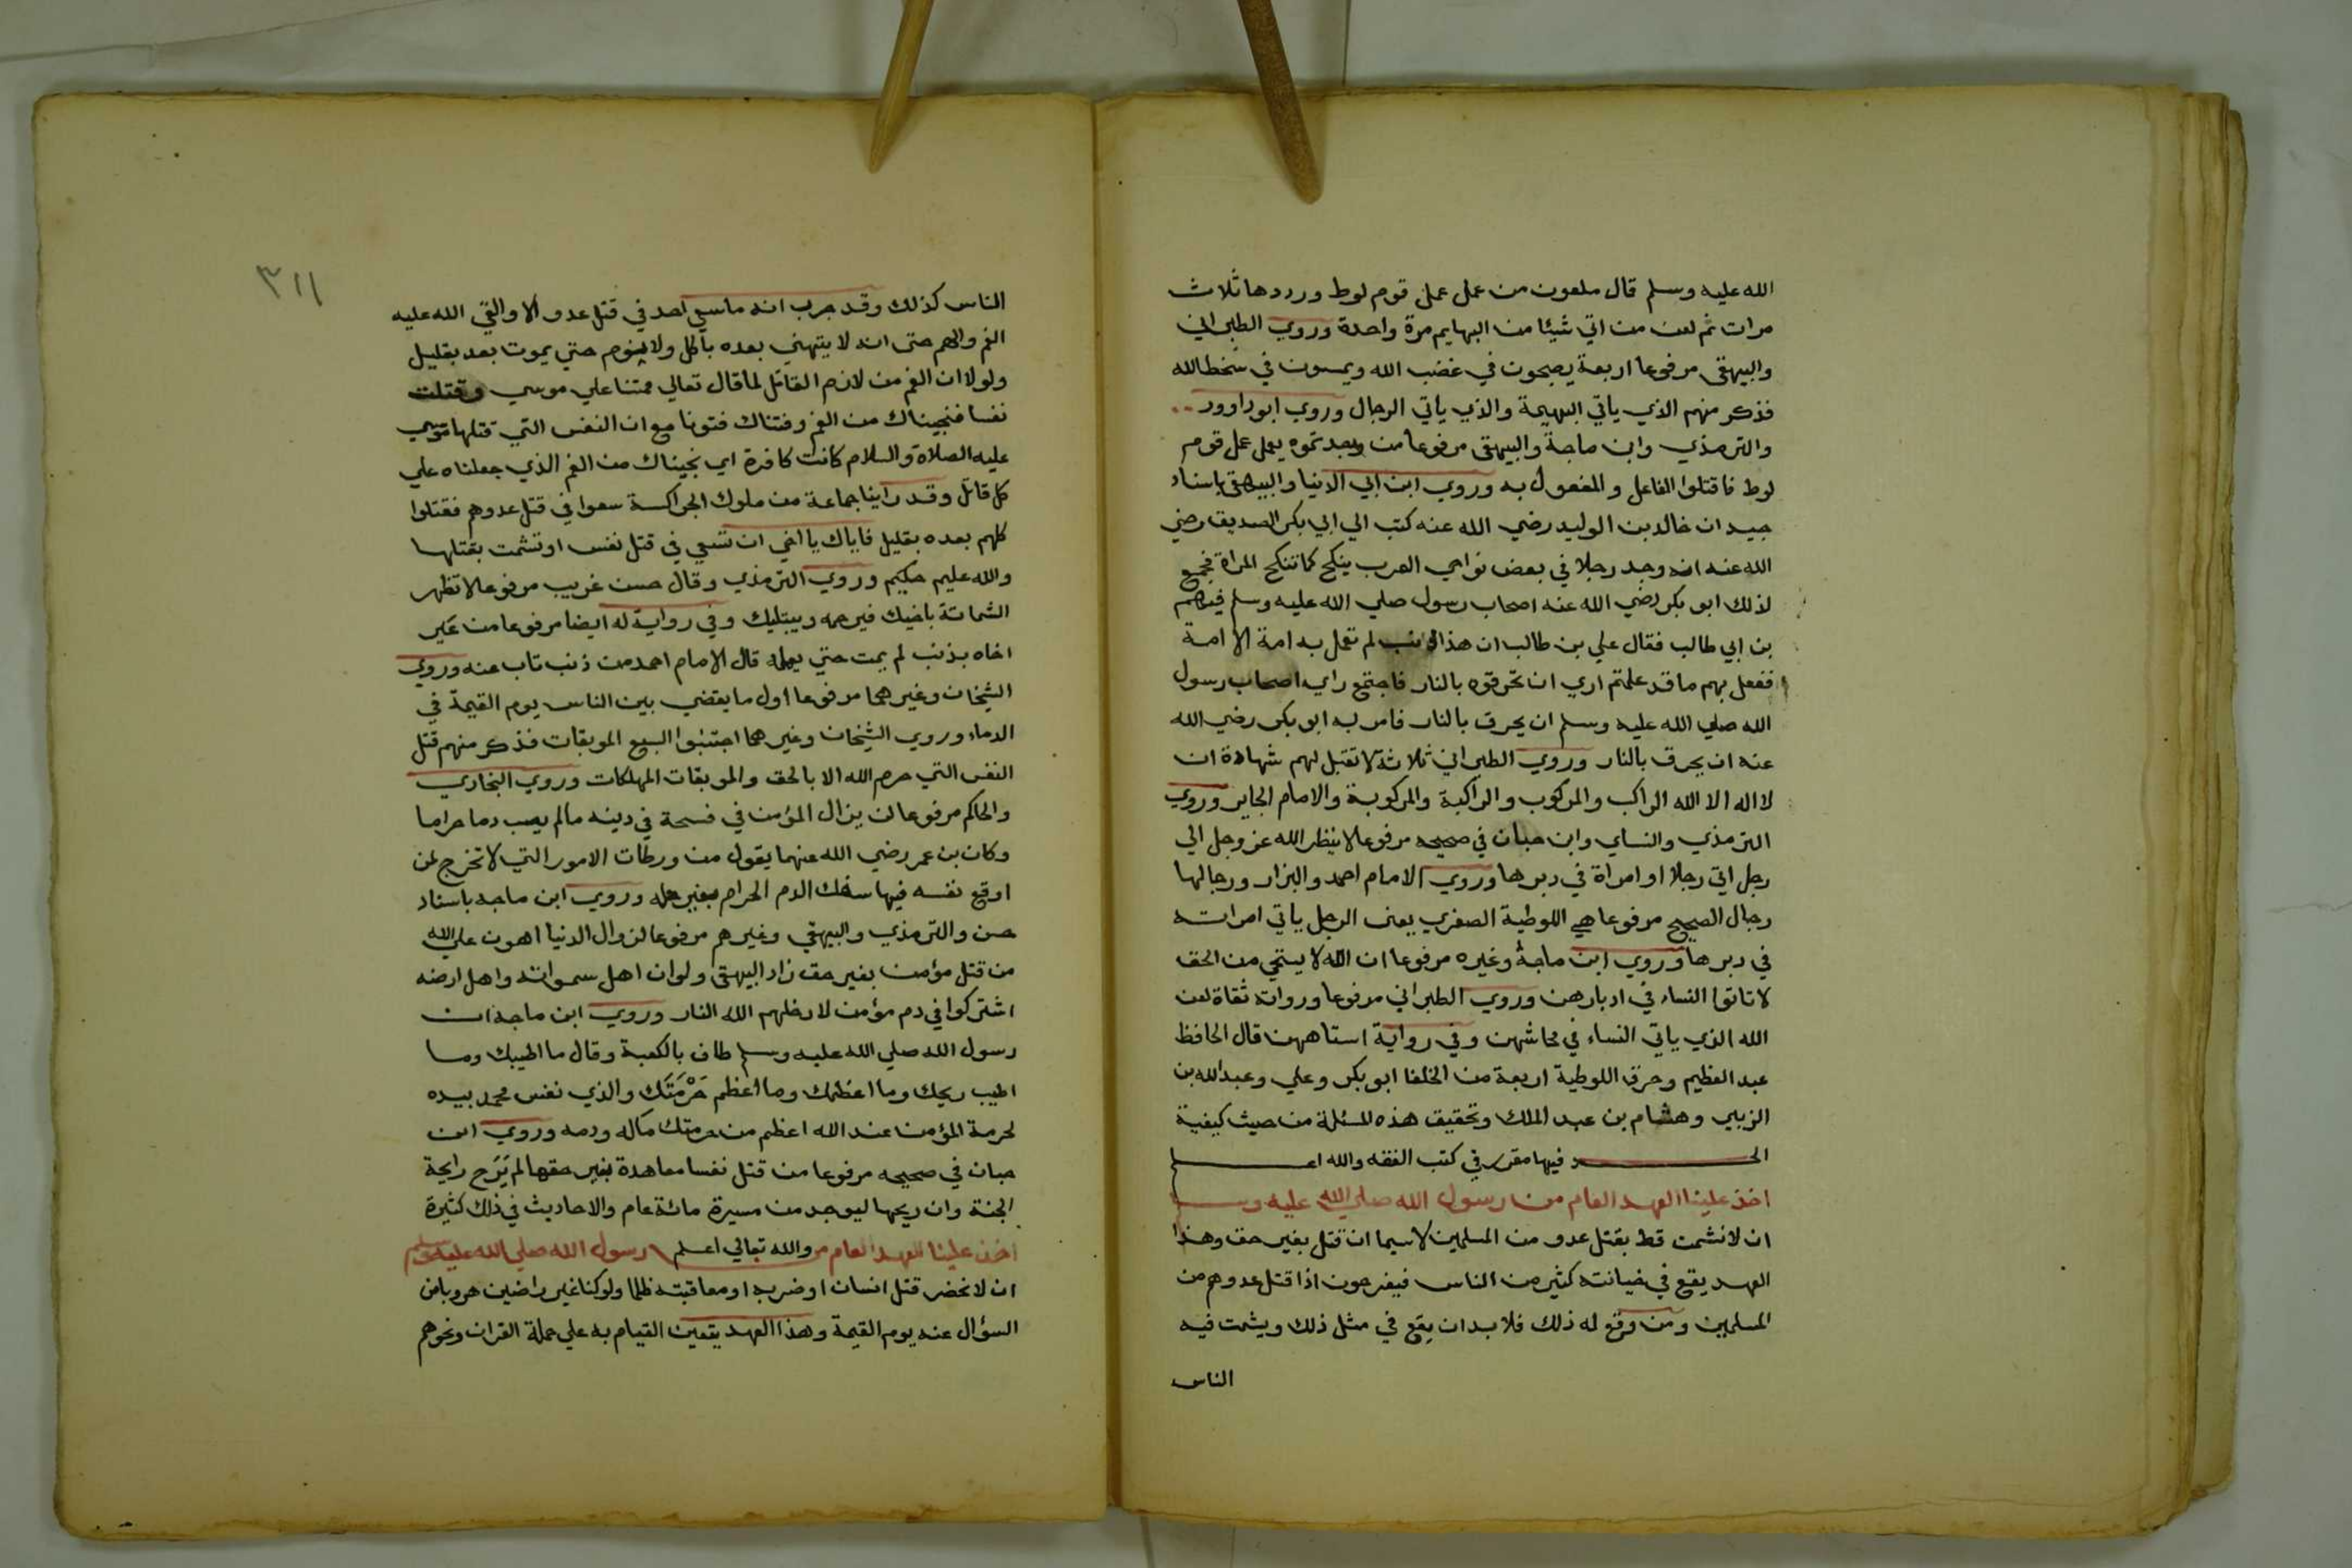 الله عليه وسلم قال ملعون من عمل عمل قوم لوط ورددها ثلاث
مرات ثم لعن من اتي شيئا من البهايم مرة واحدة وروي الطبراني
والبيهقي مرفوعا اربعة يصبحون في غضب الله ويمسون في سخط الله
فذكر منهم الذي ياتي البهيمة والذي ياتي الرجال وروي ابو داوود
والترمذي وابن ماجة والبيهقي مرفوعا من وجدتموه يعمل عمل قوم
لوط فاقتلوا الفاعل والمفعول به وروي ابن ابي الدنيا والبيهقي باسناد
جيد ان خالد بن الوليد رضي الله عنه كتب الي ابي بكر الصديق رضي
الله عنه انه وجد رجلا في بعض نواحي العرب ينكح كما تنكح المراة فجمع
لذلك ابو بكر رضي الله عنه اصحاب رسول صلي الله عليه وسلم فيهم
بن ابي طالب فقال علي بن طالب ان هذا الذنب لم تعمل به امة الا امة
ففعل بهم ما قد علمتم اري ان تحرقوه بالنار فاجتمع راي اصحاب رسول
الله صلي الله عليه وسلم ان يحرق بالنار فامر به ابو بكر رضي الله
عنه ان يحرق بالنار وروي الطبراني ثلاثة لا تقبل لهم شهادة ان
لا اله الا الله الراكب والمركوب والراكبة والمركوبة والامام الجاير وروي
الترمذي والنساي وابن حبان في صحيحه مرفوعا لا ينظر الله عز وجل الي
رجل اتي رجلا او امراة في دبرها وروي الامام احمد والبزار ورجالها
رجال الصحيح مرفوعا هي اللوطية الصغري يعني الرجل ياتي امراته
في دبرها وروي ابن ماجة وغيره مرفوعا ان الله لا يستحي من الحق
لا تاتوا النساء في ادبارهن وروي الطبراني مرفوعا ورواته ثقاة لعن
الله الذي ياتي النساء في محاشهن وفي رواية استاههن قال الحافظ
عبد العظيم وحرق اللوطية اربعة من الخلفا ابو بكر وعلي وعبد الله بن
الزبير وهشام بن عبد الملك وتحقيق هذه المسئلة من حيث كيفية
الحد فيها مقرر في كتب الفقه والله اعلم
اخذ علينا العهد العام من رسول الله صلي الله عليه وسلم
ان لا نشمت قط بقتل عدو من المسلمين لا سيما ان قتل بغير حق وهذا
العهد يقع في خيانته كثير من الناس فيفرحون اذا قتل عدوهم من
المسلمين ومن وقع له ذلك فلا بد ان يقع في مثل ذلك ويشمت فيه
الناس
٣١١
الناس كذلك وقد جرب انه ما سعي احد في قتل عدو الا والقي الله عليه
الغم والهم حتى انه لا يتهني بعده باكل ولا بنوم حتي يموت بعد بقليل
ولولا ان الغم من لازم القاتل لما قال تعالي ممتنا علي موسي وقتلت
نفسا فنجيناك من الغم وفتناك فتونا مع ان النفس التي قتلها موسي
عليه الصلاة والسلام كانت كافرة اي نجيناك من الغم الذي جعلناه علي
كل قاتل وقد راينا جماعة من ملوك الجراكسة سعوا في قتل عدوهم فقتلوا
كلهم بعده بقليل فاياك يا اخي ان تسعي في قتل نفس او تشمت بقتلها
والله عليم حكيم وروي الترمذي وقال حسن غريب مرفوعا لا تظهر
الشماتة باخيك فيرحمه ويبتليك وفي رواية له ايضا مرفوعا من عير
اخاه بذنب لم يمت حتي يعمله قال الامام احمد من ذنب تاب عنه وروي
الشيخان وغيرهما مرفوعا اول ما يقضي بين الناس يوم القيمة في
الدماء وروي الشيخان وغيرهما اجتنبوا السبع الموبقات فذكر منهم قتل
النفس التي حرم الله الا بالحق والموبقات المهلكات وروي البخاري
والحاكم مرفوعا لن يزال المؤمن في فسحة في دينه مالم يصب دما حراما
وكان بن عمر رضي الله عنهما يقول من ورطات الامور التي لا تخرج لمن
اوقع نفسه فيها سفك الدم الحرام بغير حله وروي ابن ماجه باسناد
حسن والترمذي والبيهقي وغيرهم مرفوعا لزوال الدنيا اهون علي الله
من قتل مؤمن بغير حق زاد البيهقي ولو ان اهل سمواته واهل ارضه
اشتركوا في دم مؤمن لادخلهم الله النار وروي ابن ماجة ان
رسول الله صلي الله عليه وسلم طاف بالكعبة وقال ما اطيبك وما
اطيب ريحك وما اعظمك وما اعظم حرمتك والذي نفس محمد بيده
لحرمة المؤمن عند الله اعظم من حرمتك ماله ودمه وروي ابن
حبان في صحيحه مرفوعا من قتل نفسا معاهدة بغير حقها لم يَرَح رايحة
الجنة وان ريحها ليوجد من مسيرة مائة عام والاحاديث في ذلك كثيرة
والله تعالي اعلم اخذ علينا العهد العام من رسول الله صلي الله عليه وسلم
ان لا نحضر قتل انسان او ضربه او معاقبته ظلما ولو كنا غير راضين هروبا من
السؤال عنه يوم القيمة وهذا العهد يتعين القيام به علي حملة القران ونحوهم